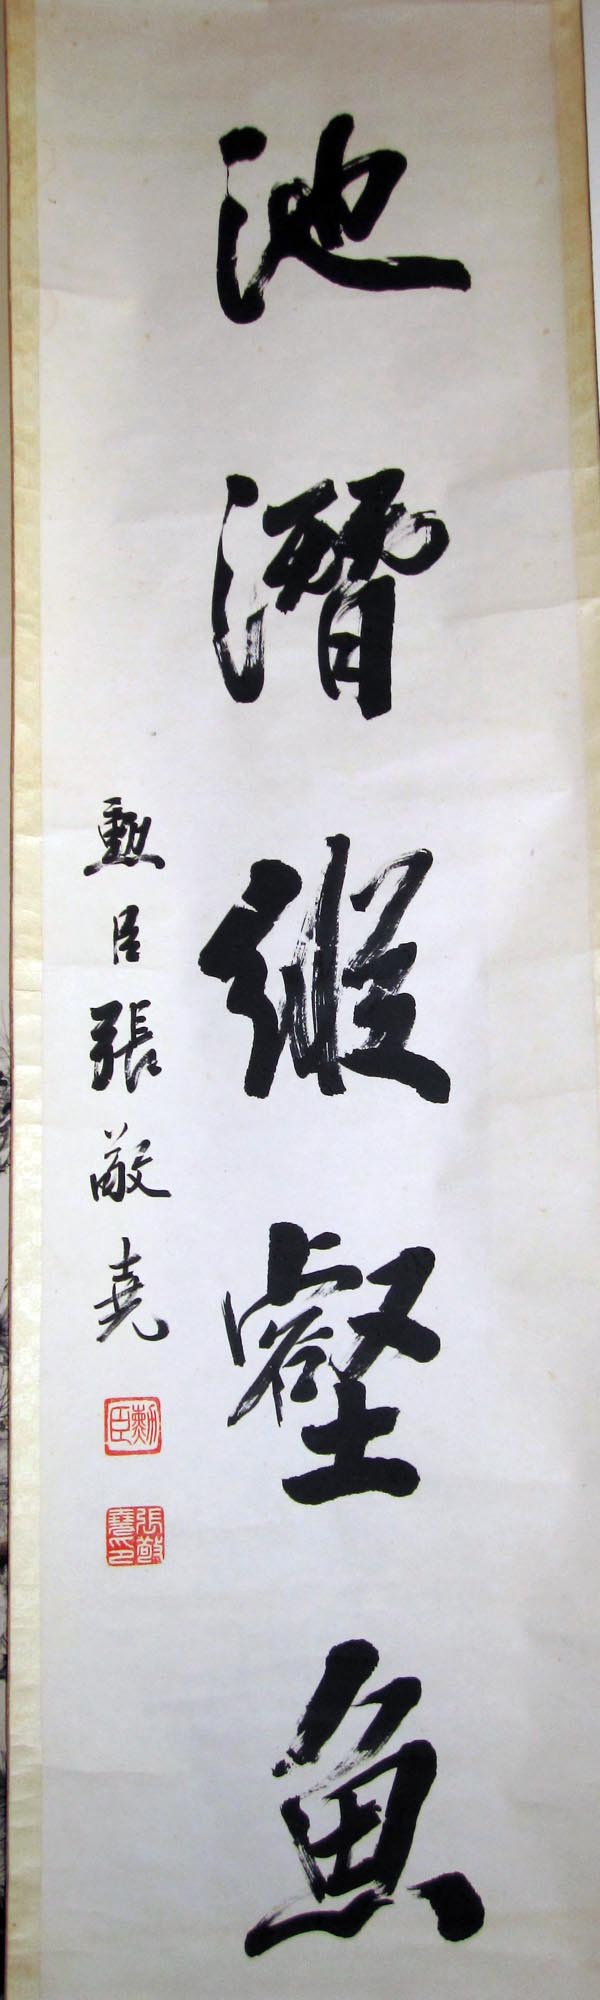 池潛縱壑魚
勳臣張敬堯
勳臣
張敬堯印